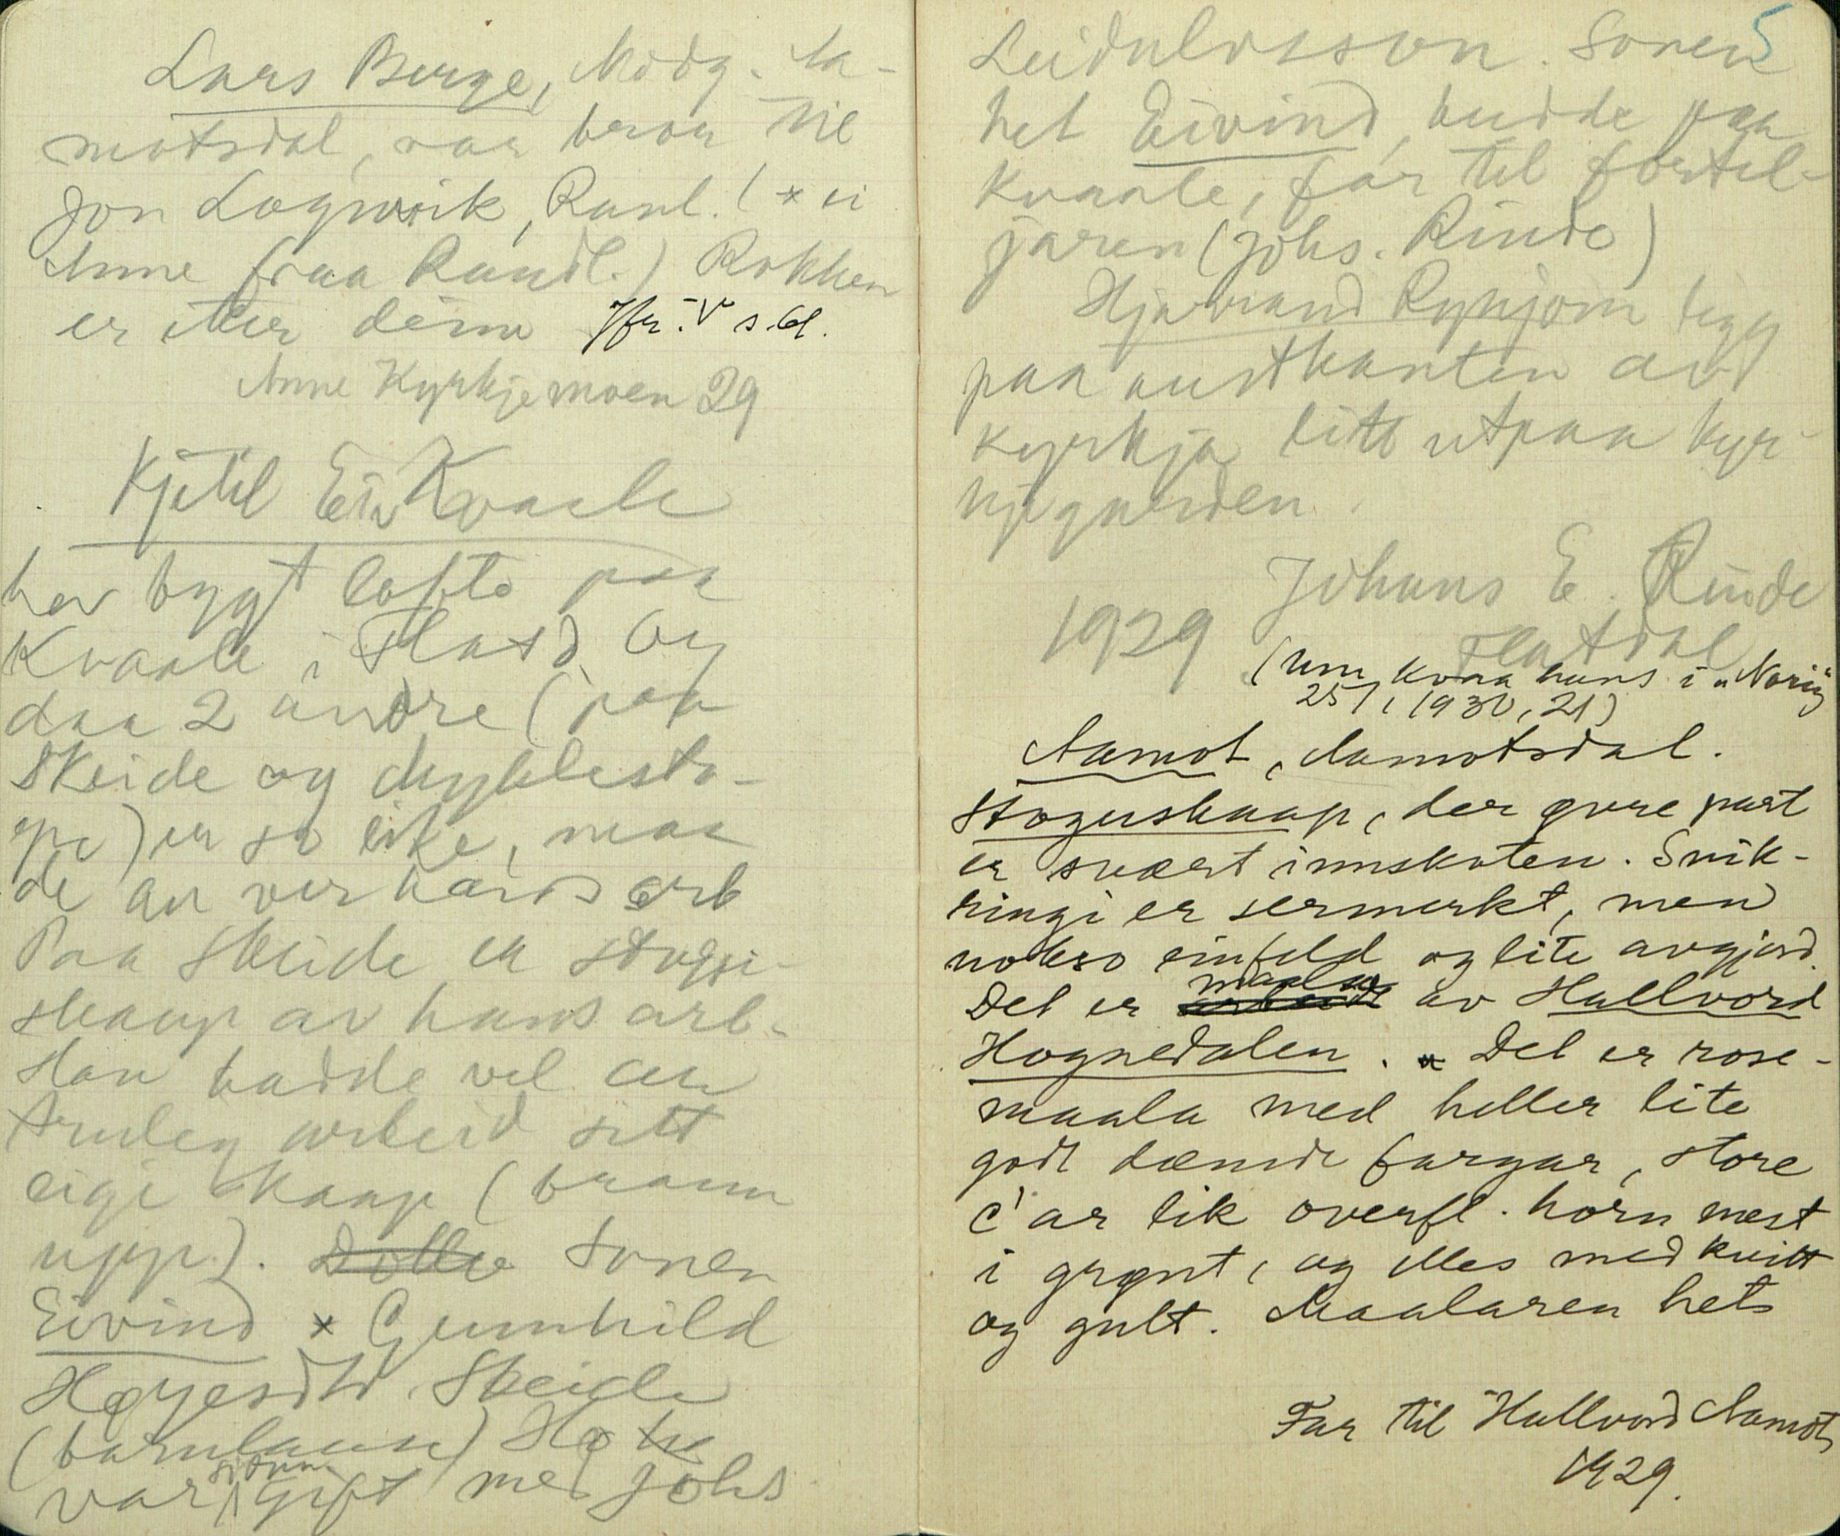 Lars Berge, Modg. Aa-
motsdal, var broa til
Jon Logwik, Raul. (* ei
Anne fraa Raudl.) Rokken
er etter deim Jfr. V s. 61.
Anne Kyrkjemoen 29
Kjetil Eiv Kvaale
hev bygt lofte paa
Kvaale i Flatd. Og
daa 2 andre (paa
Skeide og
er so like, maa
de au ver hans arb
Paa Skeide er stogu-
skaap av hans arb.
Han hadde vel au
truleg arbeid sitt
eige skaap (brann
upp). Sonen
Eivind * Gunnhild
Skeide
(barnlause) Ho
var gift med Johs
5
Leidulvsson. Sonen
het Eivind, budde paa
Kvaale, far til fortel-
jaren (Johs. Rinde)
Hjavrand Rynjom ligg
paa austkanten av
kyrkja litt utpaa kyr-
kjegarden.
Johans E. Rinde
1929 Flatdal
(Um Kvaa hans i "Norig"
25/1 1930, 21)
Aamot, Aamotsdal.
Stoguskaap, der øvre part
er svært innskoten. Snik-
ringi er sermerkt, men
nokso einfeld og lite avgjord.
Det er maala av Hallvord
Hognedalen. Det er rose-
maala med heller lite
godt dæmde fargar, store
c'ar lik overfl. horn mest
i grønt, og elles med kvitt
og gult. Maalaren hets
Far til Hallvord Aamot
1929.